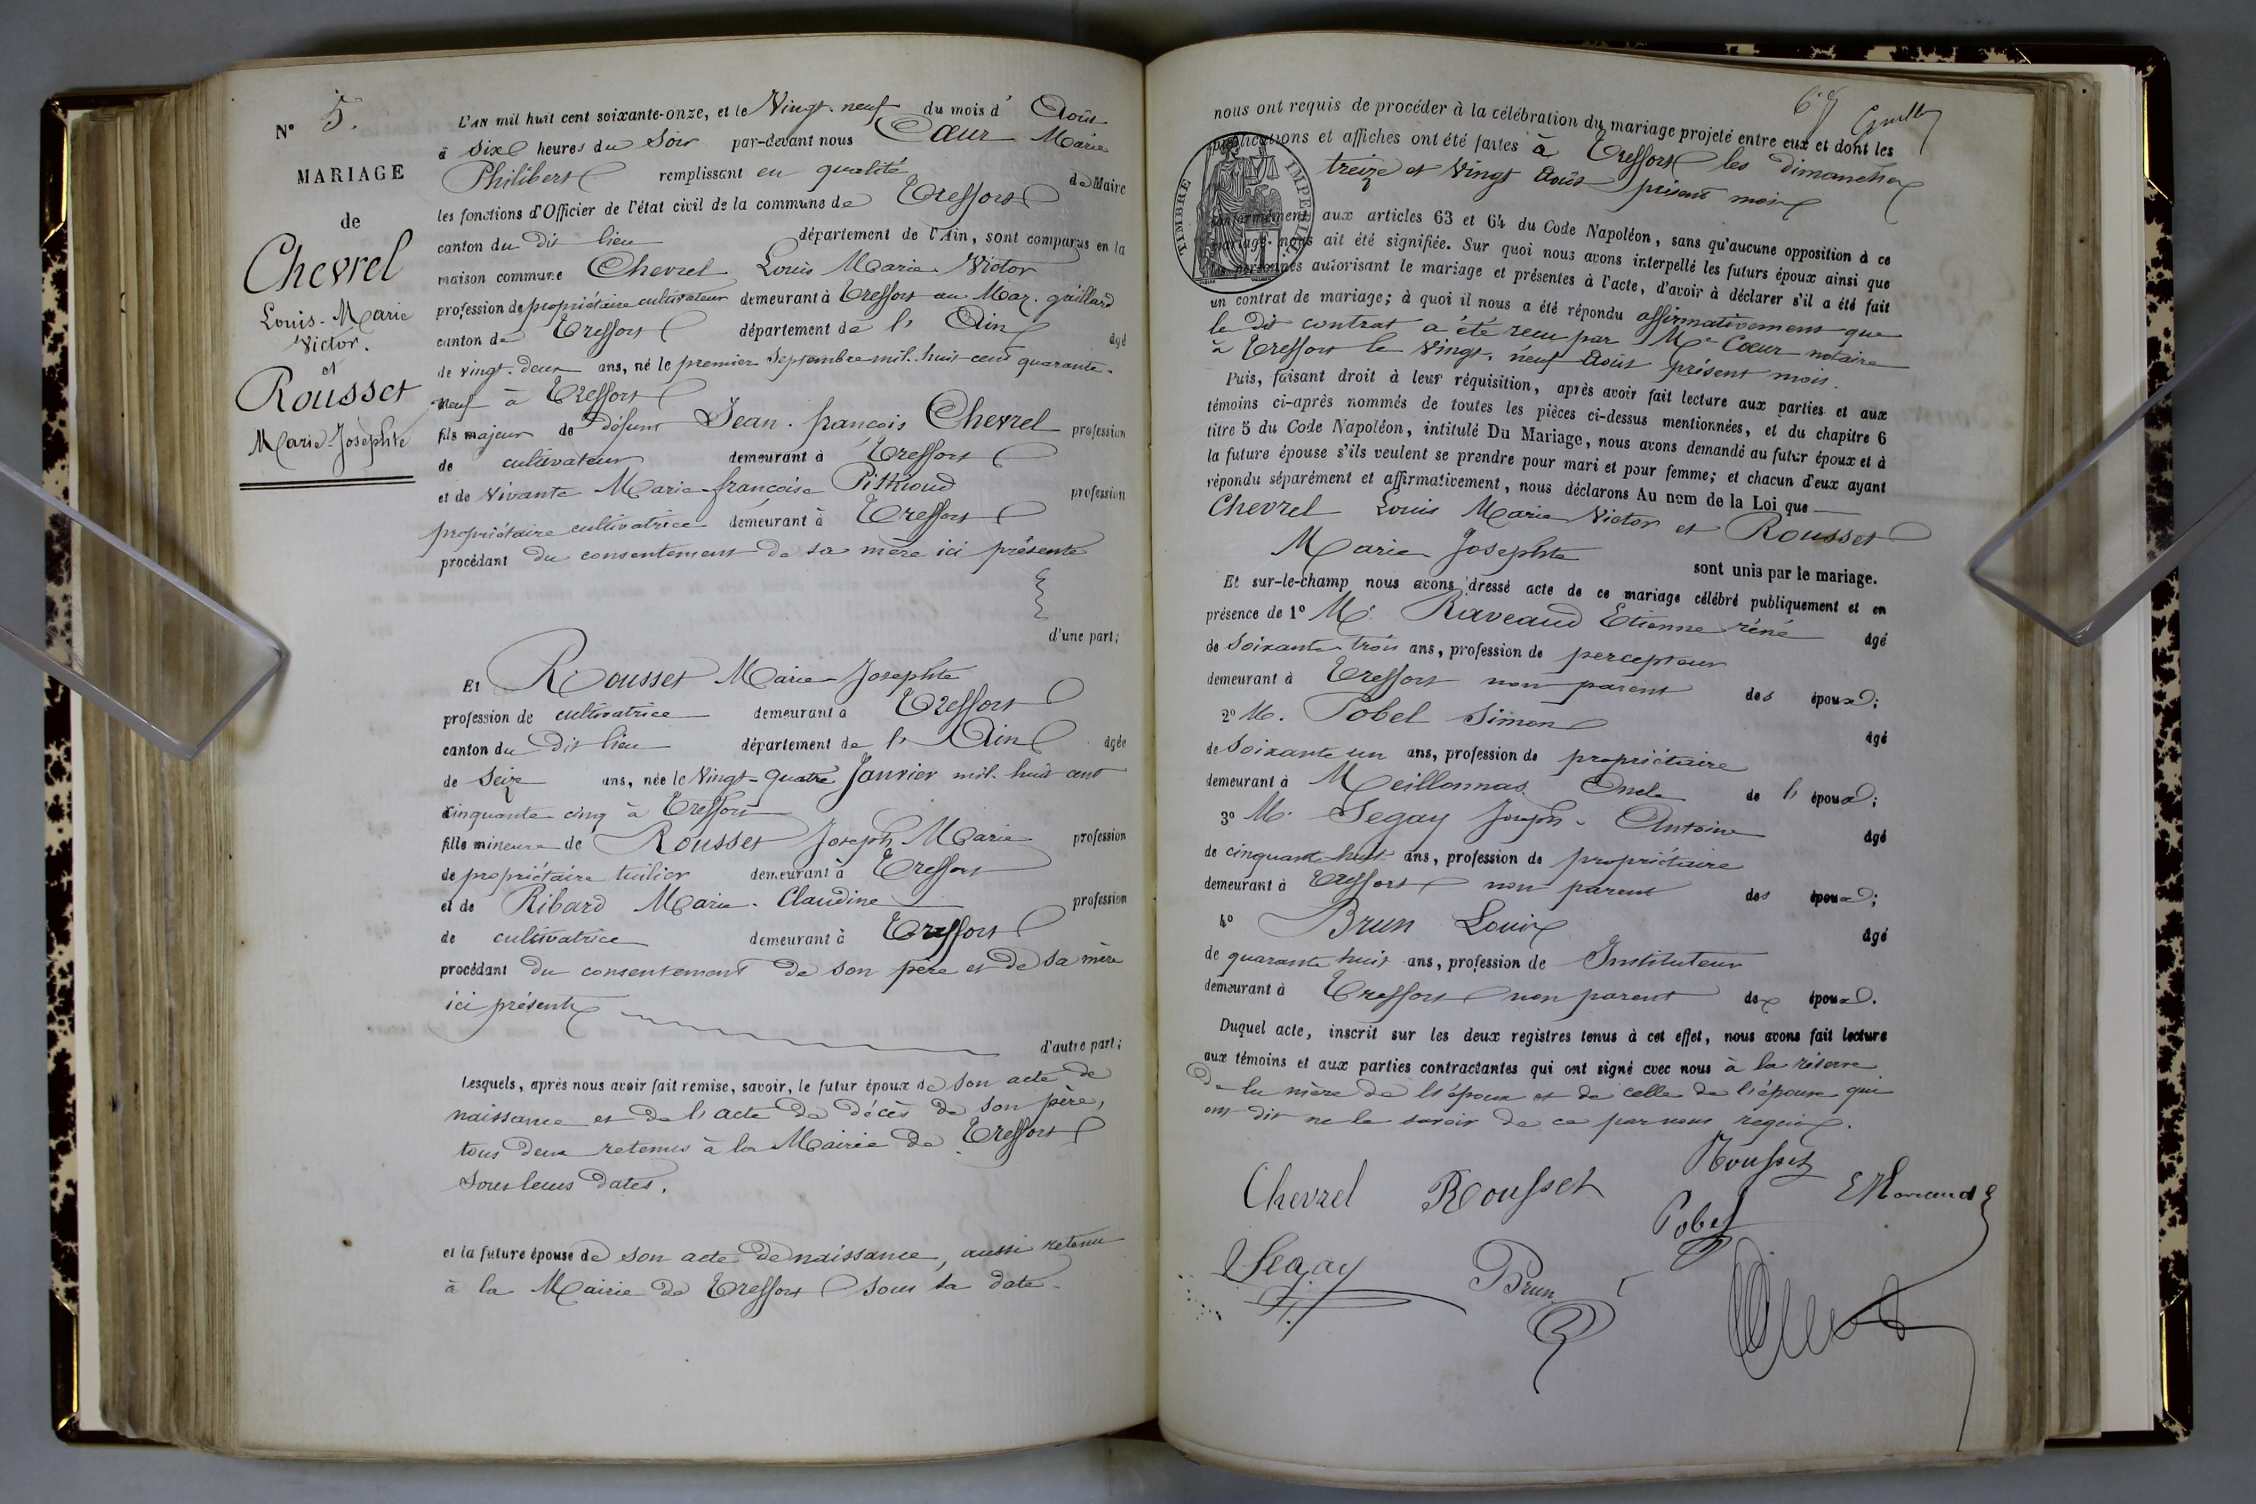 N° 5.
MARIAGE
de
Chevrel
Louis-Marie
Victor.
et
Rousset
Marie-Josephte
L'AN mil huit cent soixante-onze, et le Vingt-neuf du mois d' Août
à Six heures du Soir par-devant nous Cœur Marie
Philibert remplissant en qualité de Maire
les fonctions d'Officier de l'état civil de la commune de Treffort
canton du dit lieu département de l'Ain, sont comparus en la
maison commune Chevrel Louis Marie Victor
profession de propriétaire cultivateur demeurant à Treffort au Mar. gaillard
canton de Treffort département de l' Ain âgé
de vingt-deux ans, né le premier Septembre mil-huit cent quarante-
neuf à Treffort
fils majeur de défunt Jean-françois Chevrel profession
de cultivateur demeurant à Treffort
et de vivante Marie françoise Pithioud profession
propriétaire cultivatrice demeurant à Treffort
procédant du consentement de sa mère ici présente
d'une part;
Et Rousset Marie Josephte
profession de cultivatrice demeurant à Treffort
canton du dit lieu département de l' Ain âgée
de Seize ans, née le Vingt-quatre Janvier mil-huit cent
cinquante cinq à Treffort
fille mineure de Rousset Joseph Marie profession
de propriétaire tuilier demeurant à Treffort
et de Ribard Marie-Claudine profession
de cultivatrice demeurant à Treffort
procédant du consentement de son père et de sa mère
ici présents
d'autre part;
Lesquels, après nous avoir fait remise, savoir, le futur époux de son acte de
naissance et de l'acte de décès de son père,
tous deux retenus à la Mairie de Treffort
sous leurs dates.
et la future épouse de son acte de naissance, aussi retenu
à la Mairie de Treffort sous sa date.
nous ont requis de procéder à la célébration du mariage projeté entre eux et dont les
publications et affiches ont été faites à Treffort les dimanches
treize et vingt Août présent mois
TIMBRE IMPERIAL
conformément aux articles 63 et 64 du Code Napoléon, sans qu'aucune opposition à ce
mariage nous ait été signifiée. Sur quoi nous avons interpellé les futurs époux ainsi que
les personnes autorisant le mariage et présentes à l'acte, d'avoir à déclarer s'il a été fait
un contrat de mariage; à quoi il nous a été répondu affirmativement que
le dit contrat a été reçu par Me Cœur notaire
à Treffort le vingt-neuf Août présent mois.
Puis, faisant droit à leur réquisition, après avoir fait lecture aux parties et aux
témoins ci-après nommés de toutes les pièces ci-dessus mentionnées, et du chapitre 6
titre 5 du Code Napoléon, intitulé Du Mariage, nous avons demandé au futur époux et à
la future épouse s'ils veulent se prendre pour mari et pour femme; et chacun d'eux ayant
répondu séparément et affirmativement, nous déclarons Au nom de la Loi que
Chevrel Louis Marie Victor et Rousset
Marie Josephte sont unis par le mariage.
Et sur-le-champ nous avons dressé acte de ce mariage célébré publiquement et en
présence de 1° M. Raveaud Etienne réné âgé
de Soixante-trois ans, profession de percepteur
demeurant à Treffort non parent des époux;
2° M. Pobel Simon âgé
de Soixante un ans, profession de propriétaire
demeurant à Meillonnas Oncle de l' époux;
3° M. Segay Joseph-Antoine âgé
de cinquante-huit ans, profession de propriétaire
demeurant à Treffort non parent des époux;
4° Brun Louis âgé
de quarante huit ans, profession de Instituteur
demeurant à Treffort non parent des époux.
Duquel acte, inscrit sur les deux registres tenus à cet effet, nous avons fait lecture
aux témoins et aux parties contractantes qui ont signé avec nous à la réserve
de la mère de l'époux et de celle de l'épouse qui
ont dit ne le savoir de ce par nous requis.
Chevrel Rousset Rousset
Pobel E Raveaud
Segay Brun